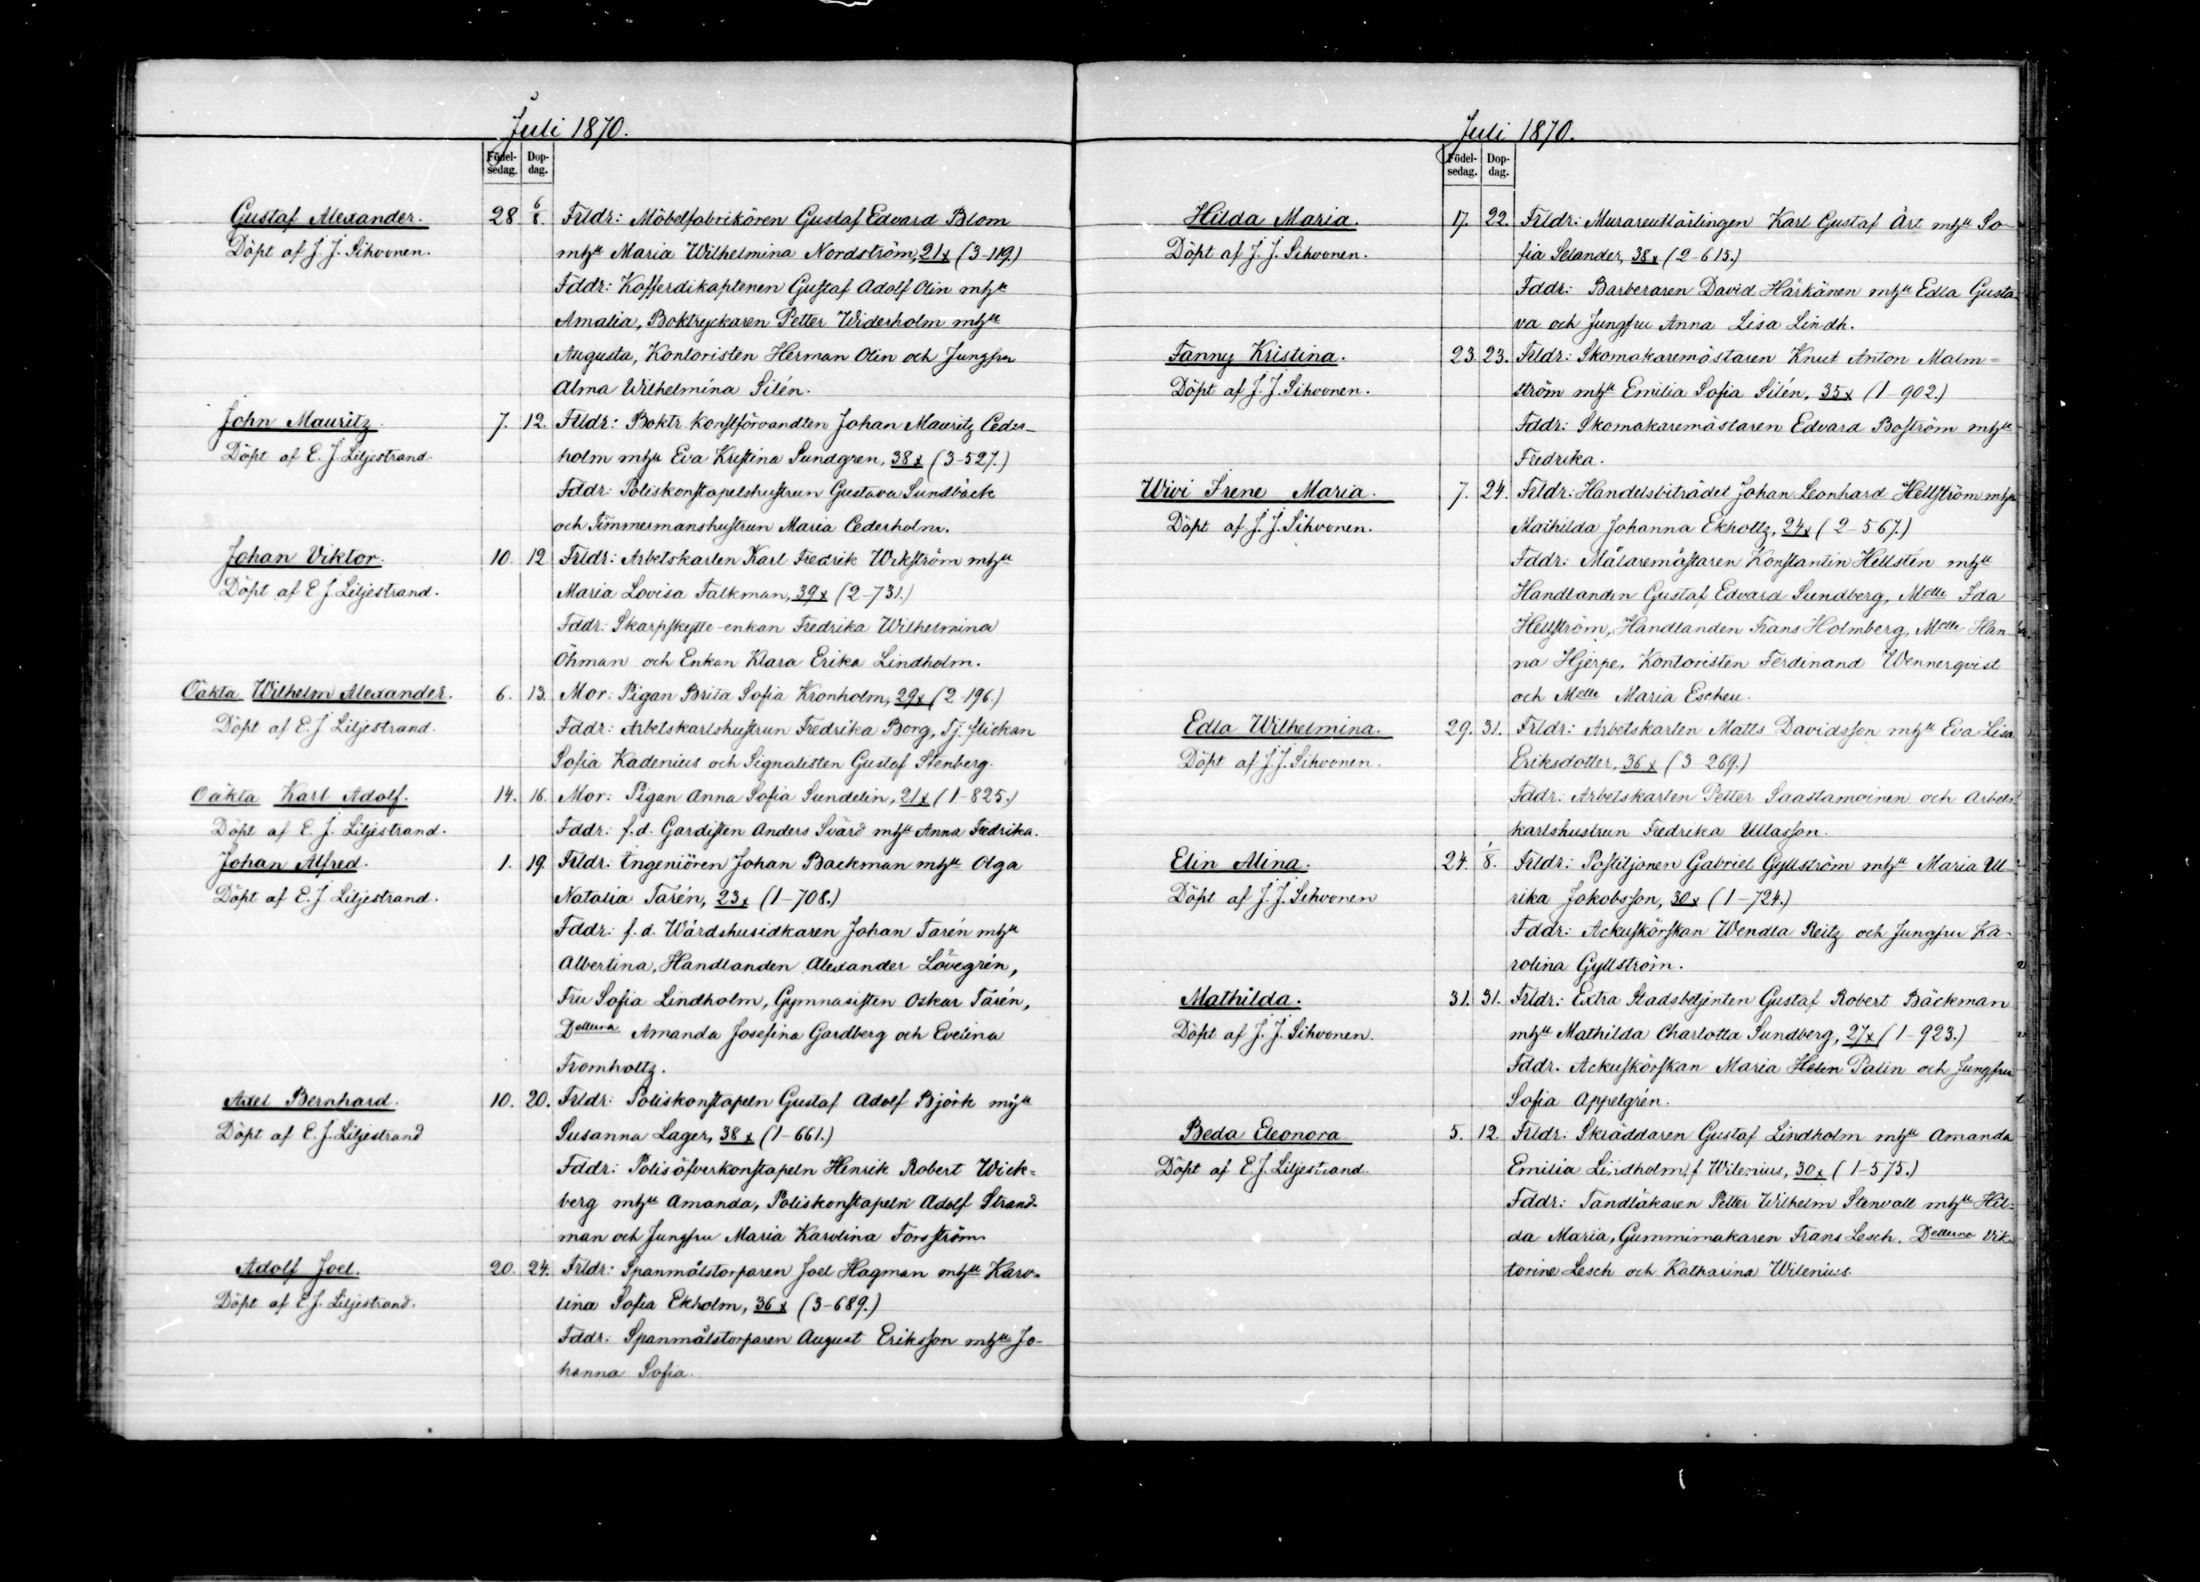 Juli 1870.
Födelsedag. Dopdag.
Gustaf Alexander. 28. 6/8. Frldr: Möbelfabrikören Gustaf Edvard Blom
Döpt af J. J. Sihvonen. mhu Maria Wilhelmina Nordström, 21x (3-119.)
Fddr: Kofferdikaptenen Gustaf Adolf Olin mhu
Amalia, Boktryckaren Petter Widerholm mhu
Augusta, Kontoristen Herman Olin och Jungfru
Alma Wilhelmina Silén.
John Mauritz. 7. 12. Frldr: Boktr. Konstförvandten Johan Mauritz Ceder-
Döpt af E. J. Liljestrand. holm mhu Eva Kristina Sundgren, 38x (3-527.)
Fddr: Poliskonstapelshustrun Gustava Sundbäck
och Timmermanshustrun Maria Cederholm.
Johan Viktor. 10. 12. Frldr: Arbetskarlen Karl Fredrik Wikström mhu
Döpt af E. J. Liljestrand. Maria Lovisa Falkman, 39x (2-731.)
Fddr: Skarpskytte-enkan Fredrika Wilhelmina
Öhman och Enkan Klara Erika Lindholm.
Oäkta Wilhelm Alexander. 6. 13. Mor: Pigan Brita Sofia Kronholm, 29x (2-196.)
Döpt af E. J. Liljestrand. Fddr: Arbetskarlshustrun Fredrika Borg, Tj. flickan
Sofia Kadenius och Signalisten Gustaf Stenberg.
Oäkta Karl Adolf. 14. 16. Mor: Pigan Anna Sofia Sundelin, 21x (1-825.)
Döpt af E. J. Liljestrand. Fddr: f.d. Gardisten Anders Svärd mhu Anna Fredrika.
Johan Alfred. 1. 19. Frldr: Ingeniören Johan Backman mhu Olga
Döpt af E. J. Liljestrand. Natalia Tarén, 23x (1-708.)
Fddr: f.d. Wärdshusidkaren Johan Tarén mhu
Albertina, Handlanden Alexander Lövegrén,
Fru Sofia Lindholm, Gymnasisten Oskar Tarén,
Dellerna Amanda Josefina Gardberg och Evelina
Fromholtz.
Axel Bernhard. 10. 20. Frldr: Poliskonstapeln Gustaf Adolf Björk mhu
Döpt af E. J. Liljestrand Susanna Lager, 38x (1-661.)
Fddr: Polisöfverkonstapeln Henrik Robert Wick-
berg mhu Amanda, Poliskonstapeln Adolf Strand-
man och Jungfru Maria Karolina Forsström.
Adolf Joel. 20. 24. Frldr: Spanmålstorparen Joel Hagman mhu Karo-
Döpt af E. J. Liljestrand. lina Sofia Ekholm, 36x (3-689.)
Fddr: Spanmålstorparen August Eriksson mhu Jo-
hanna Sofia.
Juli 1870.
Födelsedag. Dopdag.
Hilda Maria. 17. 22. Frldr: Murareutlärlingen Karl Gustaf Ärt mhu So-
Döpt af J. J. Sihvonen. fia Selander, 38x (2-615.)
Fddr: Barberaren David Härkänen mhu Edla Gusta
va och Jungfru Anna Lisa Lindh.
Fanny Kristina. 23. 23. Frldr: Skomakaremästaren Knut Anton Malm-
Döpt af J. J. Sihvonen. ström mhu Emilia Sofia Silén, 35x (1-902.)
Fddr: Skomakaremästaren Edvard Boström mhu
Fredrika.
Wivi Irene Maria. 7. 24. Frldr: Handelsbiträdet Johan Leonhard Hellström mhu
Döpt af J. J. Sihvonen. Mathilda Johanna Ekholtz, 24x (2-567.)
Fddr: Målaremästaren Konstantin Hellsten mhu
Handlanden Gustaf Edvard Sundberg, Mlle Ida
Hellström, Handlanden Frans Holmberg, Mlle Han-
na Hjerpe, Kontoristen Ferdinand Wennerqvist
och Mlle Maria Escheu.
Edla Wilhelmina. 29. 31. Frldr: Arbetskarlen Matts Davidsson mhu Eva Lisa
Döpt af J. J. Sihvonen. Eriksdotter, 36x (3-269.)
Fddr: Arbetskarlen Petter Saastamoinen och Arbets
karlshustrun Fredrika Ullasson.
Elin Alina. 24. 1/8. Frldr: Postiljonen Gabriel Gyllström mhu Maria Ul-
Döpt af J. J. Sihvonen rika Jakobsson, 30x (1-724.)
Fddr: Ackuskörskan Wendla Reitz och Jungfru Ka-
rolina Gyllström.
Mathilda. 31. 31. Frldr: Extra Stadsbetjenten Gustaf Robert Bäckman
Döpt af J. J. Sihvonen. mhu Mathilda Charlotta Sundberg, 27x (1-923.)
Fddr. Ackuskörskan Maria Helen Palin och Jungfru
Sofia Appelgrén.
Beda Eleonora 5. 12. Frldr: Skräddaren Gustaf Lindholm mhu Amanda
Döpt af E. J. Liljestrand. Emilia Lindholm, f. Wilenius, 30x (1-575.)
Fddr: Tandläkaren Petter Wilhelm Stenvall mhu Hil-
da Maria, Gummimakaren Frans Lesch, Dellerna Vik-
torine Lesch och Katharina Wilenius.